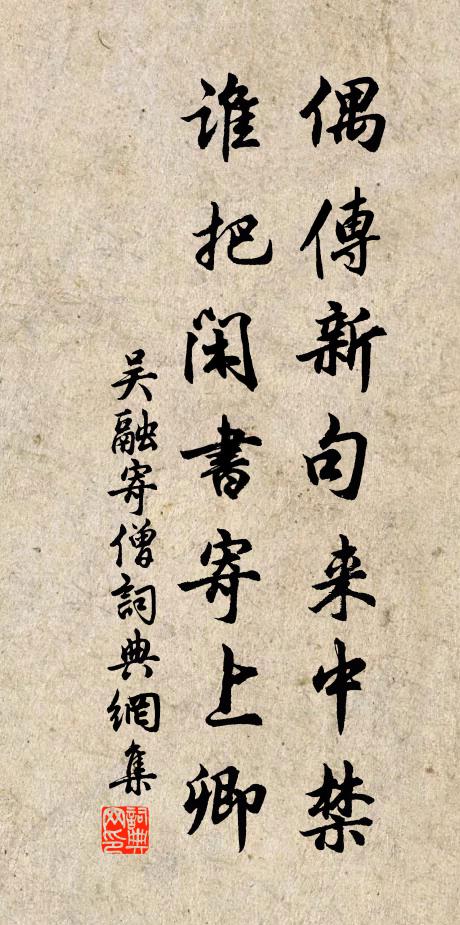 偶傳新句来中禁
谁把闲書寄上卿
吴融寄僧詞典網集
詞典网印